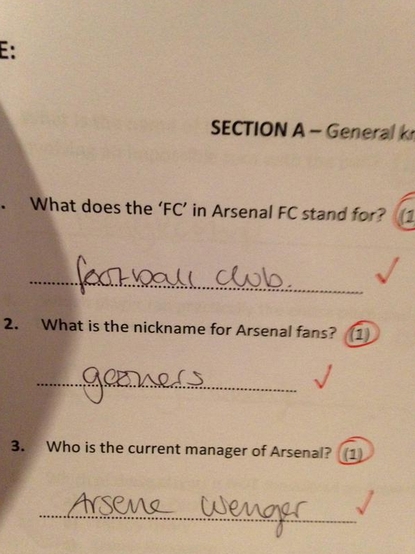 E:
SECTION A – General
. What does the 'FC' in Arsenal FC stand for? (1
football club.
2. What is the nickname for Arsenal fans? (1)
gooners
3. Who is the current manager of Arsenal? (1)
Arsene Wenger